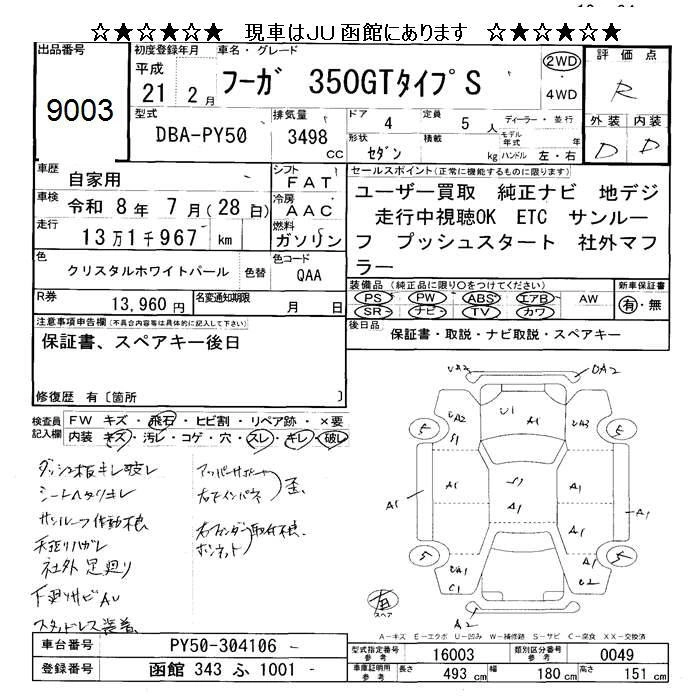 ☆★☆★☆★ 現車はJU函館にあります ☆★☆★☆★
出品番号
9003
初度登録年月
平成
21年 2月
車名・グレード
フーガ 350GTタイプS
2WD
4WD
評価点
R
外装 内装
D D
型式
DBA-PY50
排気量
3498
CC
ドア
4
定員
5人
ディーラー・並行
モデル年式 年
形状
セダン
積載
kg
ハンドル 左・右
車歴
自家用
シフト
FAT
車検
令和 8年 7月(28日)
冷房
AAC
走行
13万1千967 km
燃料
ガソリン
色
クリスタルホワイトパール
色替
色コード
QAA
R券
13,960円
名変通知期限
月 日
セールスポイント(正常に機能するものに限ります)
ユーザー買取 純正ナビ 地デジ
走行中視聴OK ETC サンルー
フ プッシュスタート 社外マフ
ラー
装備品(純正品に限り○をつけてください)
PS PW ABS エアB AW
SR ナビ TV カワ
新車保証書
有・無
後日品
保証書・取説・ナビ取説・スペアキー
注意事項申告欄(不具合内容等は具体的に記入して下さい)
保証書、スペアキー後日
修復歴 有〔箇所 〕
検査員記入欄
FW キズ・飛石・ヒビ割・リペア跡・×要
内装 キズ・汚レ・コゲ・穴・スレ・キレ・破レ
ダッシュ板キレ破レ
シートヘタリキレ
サンルーフ作動不良
天張りハガレ
社外足廻り
下廻リサビAU
スタッドレス装着
アッパーサポート
右下インパネ
歪
右フェンダー取付不良
ボンネット
UA2
UA2
UA2
S1
U1
A1
UA3
5
5
A1
A1
S1
A1
A1
5
5
UA1
C1
A1
A1
C2
A2
有
スペア
A-キズ E-エクボ U-凹み W-補修跡 S-サビ C-腐食 XX-交換済
車台番号
PY50-304106
登録番号
函館 343 ふ 1001
型式指定番号
参考
16003
類別区分番号
参考
0049
車庫証明用
参考
長さ
493 cm
幅
180 cm
高さ
151 cm